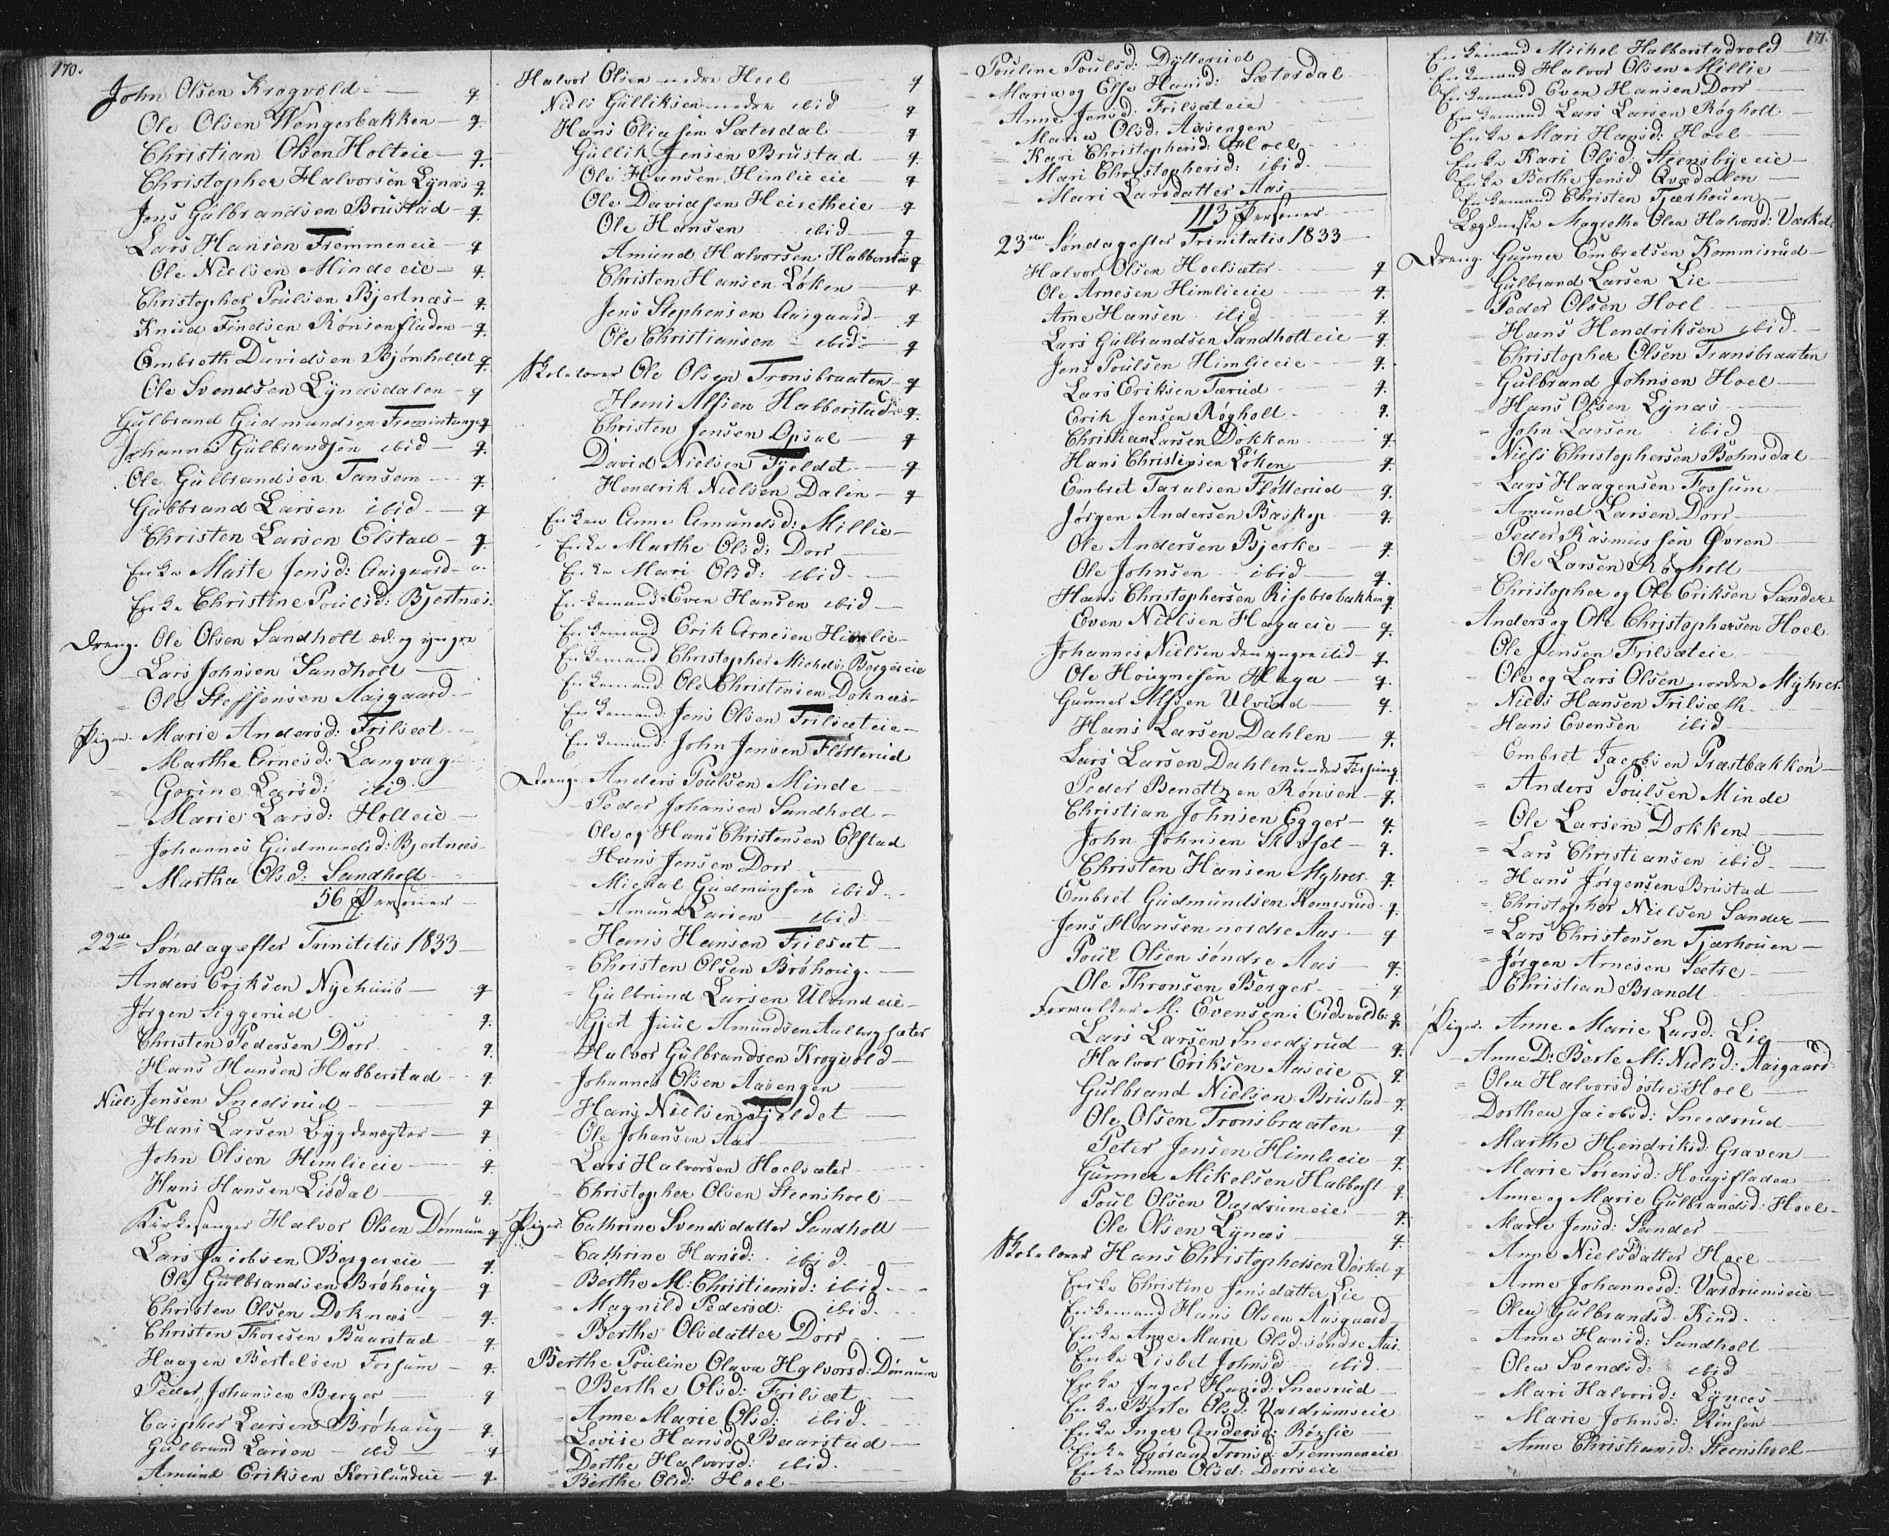 170.
John Olsen Krogvold - q.
Ole Olsen Wengerbakken - q.
Christian Olsen Holteie - q.
Christopher Halvorsen Lynæs q.
Jens Gulbrandsen Brustad - q.
Lars Hansen Fremmeneie - q.
Ole Nielsen Mindeeie - q.
Christopher Poulsen Bjertnæs - q.
Knud Findsen Rønsenfladen - q.
Embreth Davidsen Bjønholtet q.
Ole Svendsen Lynæsdalen - q
Gulbrand Gudmundsen Fremintange q
Johannes Gulbrandsen ibid - q.
Ole Gulbrandsen Tansem - q.
Gulbrand Larsen ibid - q
Christen Larsen Elstad - q.
Enke Marte Jensd: Aasgaard -
Enke Christine Poulsd: Bjertnæs.
Dreng. Ole Olsen Sandholt æd. og yngre
Lars Johnsen Sandholt -
" Ole Steffensen Aasgaard -
Piger. Marie Andersd: Frilsæt -
Marthe Arnesd: Langvag -
Gorine Larsd: ibid -
Marie Larsd: Holteie -
Johannes Gudmundsd: Bjertnæs -
Martha Olsd: Sandholt
56 Personer -
22de Søndag efter Trinitatis 1833 -
Anders Eriksen Nyehuus - q
Jørgen Siggerud q.
Christen Pedersen Dorr q.
Hans Hansen Habberstad - q.
Niels Jensen Snedsrud - q
Hans Larsen Bygdevægter - q
John Olsen Himlieeie - q.
Hans Hansen Lisdal - q.
Kirkesanger Halvor Olsen Dønnum q
Lars Jacobsen Bergereie - q.
Ole Gulbrandsen Brøhoug - q
Christen Olsen Doknæs - q.
Christen Thoresen Baarstad - q
Haagen Bertelsen Fossum - q.
Peder Johansen Berger - q
Casper Larsen Brøhaug - q.
Gulbrand Larsen - ibd - q
Amund Eriksen Korslundeie - q.
Halvor Olsen nedre Hoel - q
Niels Gulliksen nedre ibid - q
Hans Eliasen Sætersdal - q
Gullik Jensen Brustad - q.
Ole Hansen Himlieeie q
Ole Davidsen Heiretheie - q
Ole Hansen ibid - q
Amund Halvorsen Habberstad q
Christen Hansen Løken - q
Jens Stephensen Aasgaard - q
Ole Christiansen - ibid - q
Skolelærer Ole Olsen Tronsbraaten - q
Hans Alfsen Habberstad - q.
Christen Jensen Opsal - q
David Nielsen Fjeldet - q
Hendrik Nielsen Dalen - q
Enken Anne Amundsd: Millie -
Enke Marthe Olsd: Dorr -
Enke Mari Olsd: ibid -
Enkemand Even Hansen ibid -
Enkemand Erik Arnesen Himlie -
Enkemand Christopher Michels: Bergereie
Enkemand Ole Christensen Doknæs -
Enkemand: Jens Olsen Frilsæteie -
Enkemand: John Jensen Fløtterud
Dreng. Anders Poulsen Minde -
" Peder Johansen Sandholt -
" Ole og Hans Christensen Elstad
" Hans Jensen Dorr -
" Michal Gudmunsen ibid -
" Amund Larsen - ibid
" Hans Hansen Frilsæt -
" Christen Olsen Brøhoug. -
" Gulbrand Larsen Ulvindeie -
" Gjert Juul Amundsen Aalborgsæter
" Halvor Gulbrandsen Krogvold -
" Johannes Olsen Aasengen -
" Hans Nielsen Fjeldet -
" Ole Johansen Aas -
" Lars Halvorsen Hoelsæter
" Christopher Olsen Steenshoel -
Piger. Cathrine Svendsdatter Sandholt -
" Cathrine Hansd: ibid. -
" Berthe M: Christiansd: ibid -
" Magnild Pedersd: ibid.
" Berthe Olsdatter Dorr -
Berthe Pouline Olava Halvorsd: Dønnum
" Berthe Olsd: Frilsæt -
" Anne Marie Olsd: ibid. -
" Lovise Hansd: Baarstad -
" Dorthe Halvorsd: ibid. -
" Berthe Olsd: Hoel -
- Pouline Poulsd: Dytterud
- Maria og Else Hansd: Sætersdal
Anne Jensd: Frilsæteie
" Maria Olsd: Aasengen
" Kari Christophersd: Hoel
" Mari Christophersd: ibid
" Mari Larsdatter Aas
113 Personer
23de Søndag efter Trinitatis 1833 -
Halvor Olsen Hoelsæter q
Ole Arnesen Himlieeie q.
Arne Hansen ibid - q.
Lars Gulbrandsen Sandholteie - q.
Jens Poulsen Himlieeie - q.
Lars Eriksen Tærud - q.
Erik Jensen Røgholt - q.
Christian Larsen Dokken q.
Hans Christensen Løken - q.
Embret Taralsen Fløtterud - q.
Jørgen Andersen Baskop - q.
Ole Andersen Bjerke - q
Ole Johnsen ibid - q.
Hans Christophersen Risebrobakken q.
Even Nielsen Hagaeie - q.
Johannes Nielsen den yngre ibid - q
Ole Hougnesen Haga - q.
Gunner Alfsen Ulvind - q.
Hans Larsen Dahlen - q.
Lars Larsen Dahlen under Fossum q.
Peder Benettzen Rønsen - q.
Christian Johnsen Egger - q.
John Johnsen Skovset - q.
Christen Hansen Myhrer q.
Embret Gudmundsen Komsrud - q.
Jens Hansen nordre Aas - q
Poul Olsen søndre Aas - q.
Ole Thronsen Berger q
Forvalter M. Evensen i Eidsvoldb: q.
Lars Larsen Sneedsrud - q.
Halvor Eriksen Aaseie - q.
Gulbrand Nielsen Brustad - q.
Ole Olsen Tronsbraaten - q
Peter Jensen Himlieeie - q.
Gunner Mikelsen Habberst - q
Poul Olsen Værdrumeie - q.
Ole Olsen Lynæs q.
Skolelærer Hans Christophersen Værkel q
Enke Christine Jensdatter Lie
Enkemand Hans Olsen Aasgaard
Enke Anne Marie Olsd: søndre Aas
Enke Lisbet Johnsd ibid.
Enke Inger Hansd: Sneesrud -
Enke Berte Olsd: Værdrumseie
Enke Inger Andersd: Røisie
Enke Gorand Tronsd: Fremmeneie
Enke Anne Olsd: Dorreie
171.
Enkemand Michel Habberstadvold -
Enkemand Halvor Olsen Millie -
Enkemand Even Hansen Dorr -
Enkemand Lars Larsen Røgholt -
Enke Mari Hansd: Hoel -
Enke Kari Olsd: Steensbyeeie -
Enke Berthe Jensd Qvædalen -
Enkemand Christen Tjærhouen -
Lægdneste Magrethe Olea Halvorsd: Værkel
Dreng. Gunner Embretsen Kommisrud -
" Gulbrand Larsen Lie -
" Peder Olsen Hoel -
" Hans Hendriksen ibid. -
" Christopher Olsen Transbraaten
" Gulbrand Johnsen Hoel -
" Hans Olsen Lynæs
" John Larsen ibid
" Niels Christophersen Bohnsdal -
" Lars Haagensen Fossum
" Amund Larsen Dorr
" Peder Rasmussen Øvren -
" Ole Larsen Røgholt -
" Christopher og Ole Eriksen Sander
- Anders og Ole Christophersen Hoel
" Ole Jensen Frilsæteie -
" Ole og Lars Olsen nordre Myhrer
" Niels Hansen Frilsæth -
" Hans Evensen ibid
" Embret Jacobsen Præstbakken -
" Anders Poulsen Minde
" Ole Larsen Dokken -
" Lars Christiansen ibid. -
" Hans Jørgensen Brustad -
" Christopher Nielsen Sander -
" Lars Christensen Tjærhouen -
" Jørgen Arnesen Sætre -
" Christian Brandt -
Piger. Anne Marie Larsd: Lie
- Anne D: Berte M: Nielsd: Aasgaard
" Olea Halvorsd østre Hoel -
" Dorthea Jacobsd: Sneedsrud -
" Marthe Hendriksd: Graven -
" Marie Sørensd: Hougsfladen -
" Anne og Marie Gulbrandsd: Hoel -
" Marte Jensd: Sander -
" Anne Nielsdatter Hoel -
" Anne Johannesd: Værdrumseie -
" Olea Gulbrandsd. Rind.
" Anne Hansd: Sandholt -
" Olea Svendsd: ibid
" Mari Halvorsd: Lynæs -
" Marie Johnsd: Rønsen
" Anne Christiansd: Steenshoel -